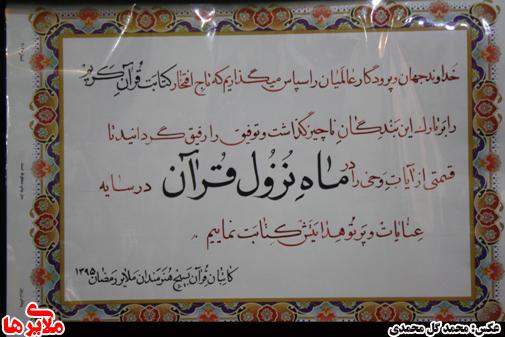 خداوند جهان و پروردگار عالمیان را سپاس میگذاریم که تاج افتخار کتابت قرآن کریم
را بر تارک این بندگان ناچیز گذاشت و توفیق را رفیق گردانید تا
قسمتی از آیات وحی را در ماه نزول قرآن در سایه
عنایات و پرتو هدایتش کتابت نماییم
کاتبان قرآن بسیج هنرمندان ملایر رمضان ۱۳۹۵
ملایری ها
عکس: محمد گل محمدی